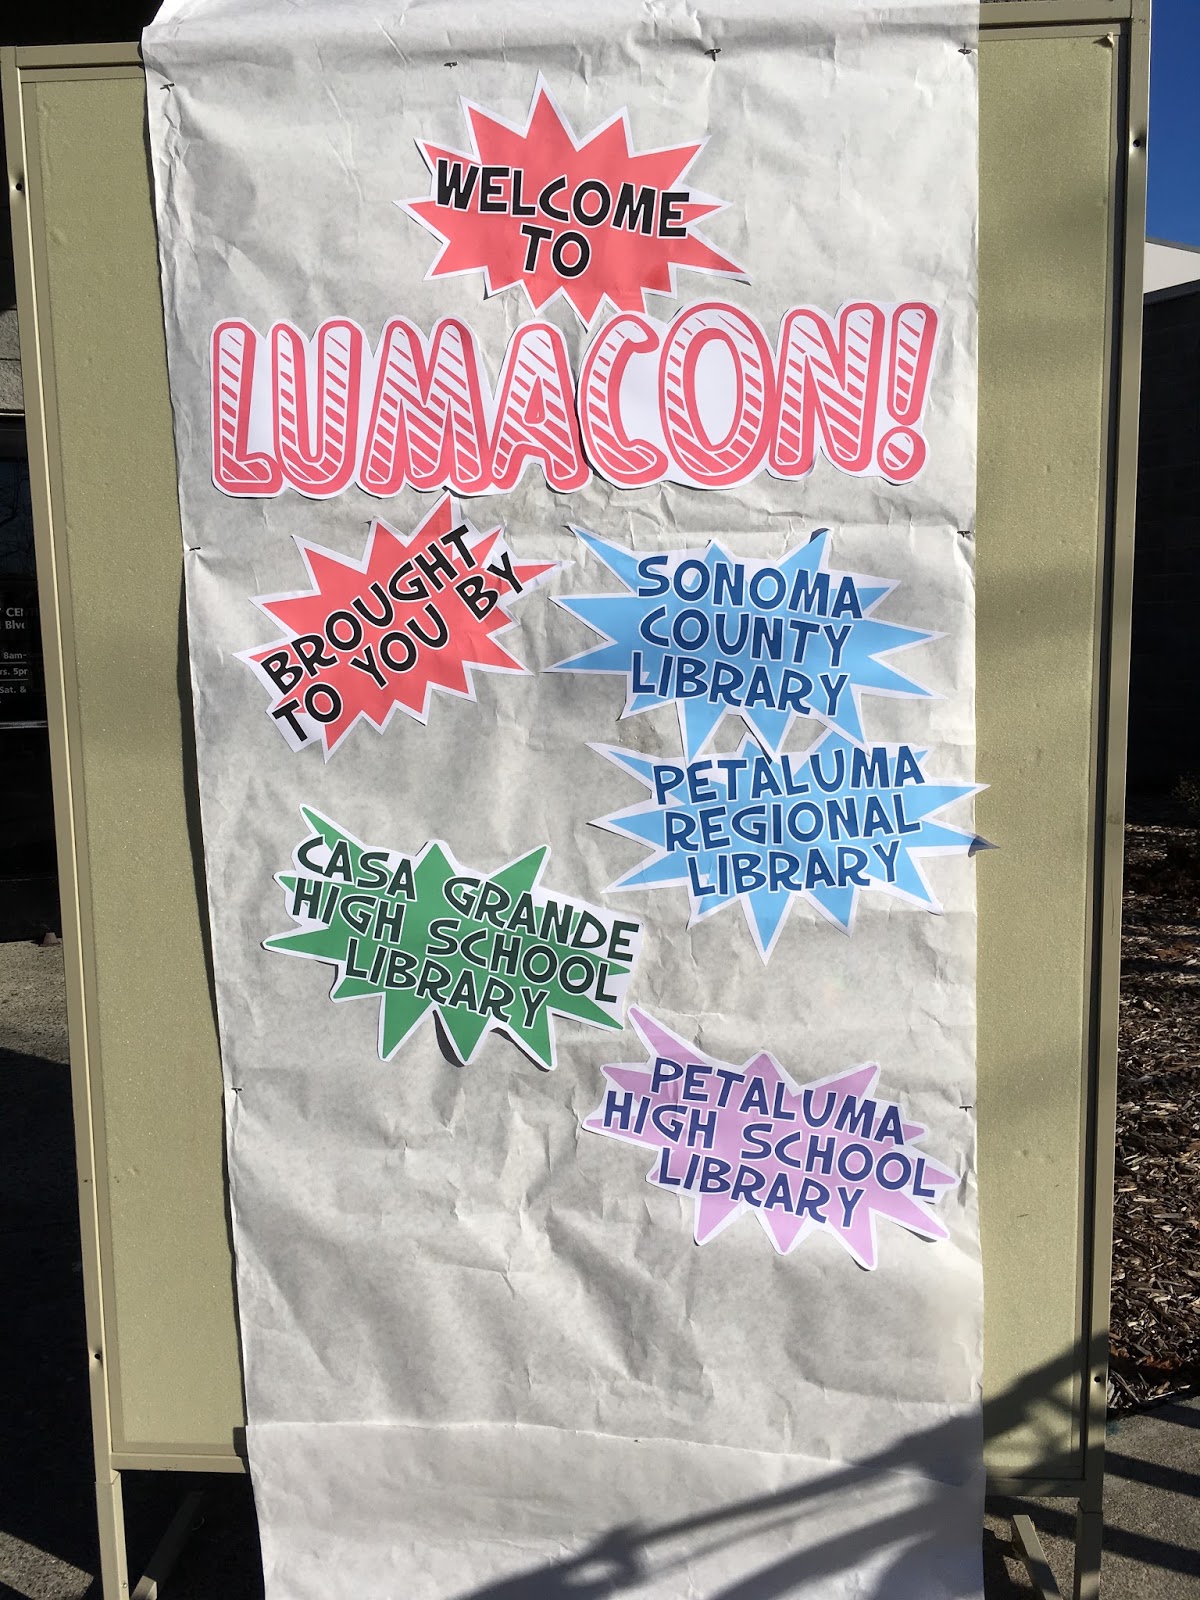 WELCOME
TO
LUMACON!
BROUGHT
TO YOU BY
SONOMA
COUNTY
LIBRARY
PETALUMA
REGIONAL
LIBRARY
CASA GRANDE
HIGH SCHOOL
LIBRARY
PETALUMA
HIGH SCHOOL
LIBRARY
Blvd
8am-
5pm
Sat. &